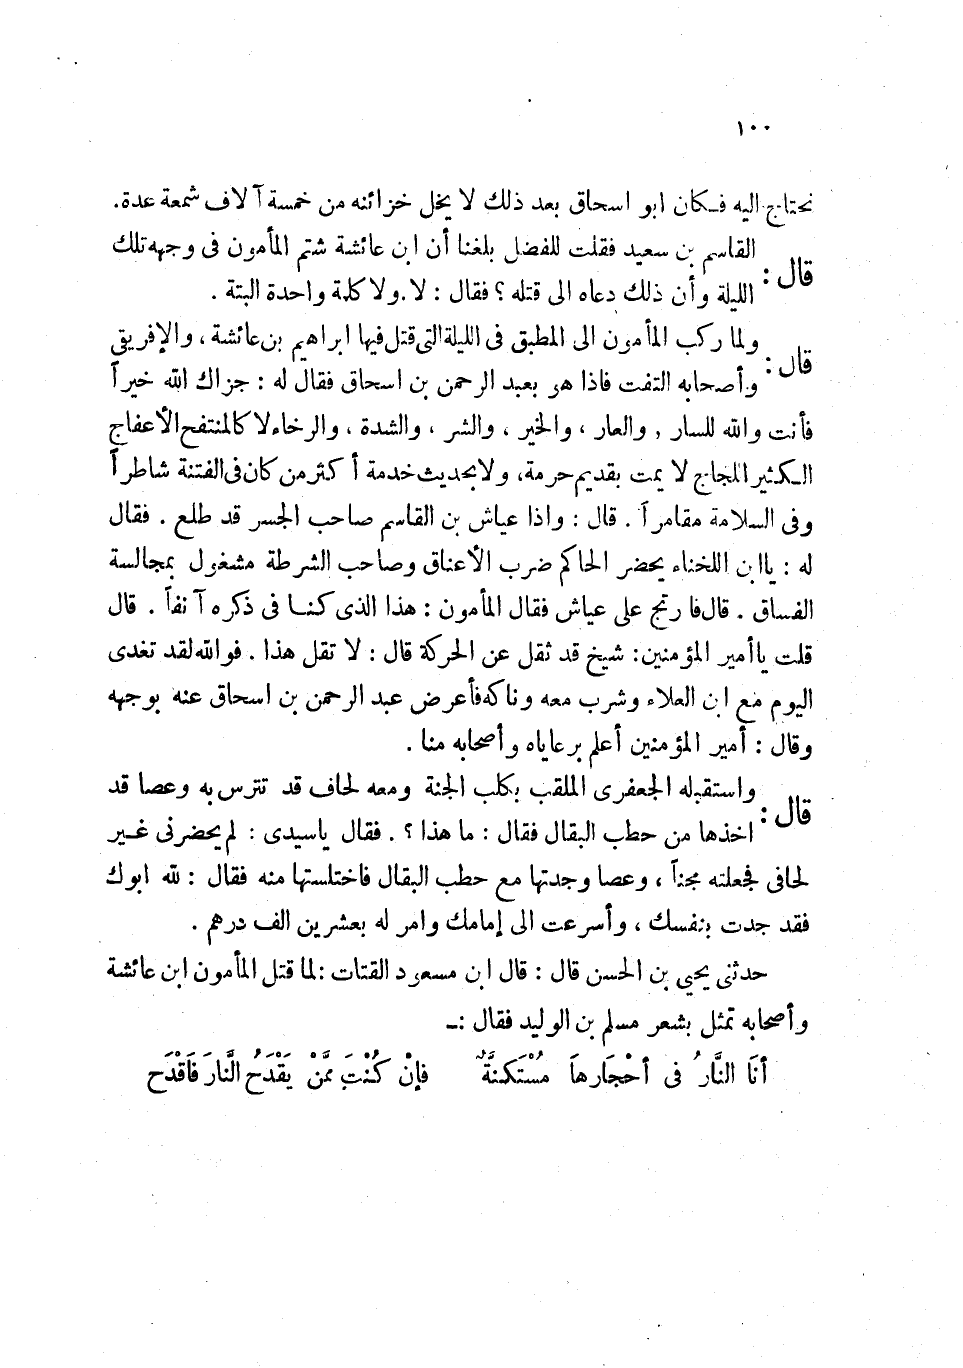 ١٠٠
نحتاج اليه فكان ابو اسحاق بعد ذلك لا يخل خزائنه من خمسة آلاف شمعة عدة.
قال : القاسم بن سعيد فقلت للفضل بلغنا أن ابن عائشة شتم المأمون فى وجهه تلك
الليلة وأن ذلك دعاه الى قتله ؟ فقال : لا. ولا كلمة واحدة البتة .
قال : ولما ركب المأمون الى المطبق فى الليلة التى قتل فيها ابراهيم بن عائشة ، والإفريقى
وأصحابه التفت فاذا هو بعبد الرحمن بن اسحاق فقال له : جزاك الله خيراً
فأنت والله للسار , والعار ، والخير ، والشر ، والشدة ، والرخاء لا كالمنتفح الأعفاج
الكثير المجاج لا يمت بقديم حرمة، ولا بحديث خدمة أكثر من كان فى الفتنة شاطراً
وفى السلامة مقامراً . قال : واذا عياش بن القاسم صاحب الجسر قد طلع . فقال
له : يا ابن اللخناء يحضر الحاكم ضرب الأعناق وصاحب الشرطة مشغول بمجالسة
الفساق . قال فارتج على عياش فقال المأمون : هذا الذى كنا فى ذكره آنفاً . قال
قلت يا أمير المؤمنين: شيخ قد ثقل عن الحركة قال : لا تقل هذا . فوالله لقد تغدى
اليوم مع ابن العلاء وشرب معه وناكه فأعرض عبد الرحمن بن اسحاق عنه بوجهه
وقال : أمير المؤمنين أعلم برعاياه وأصحابه منا .
قال : واستقبله الجعفرى الملقب بكلب الجنة ومعه لحاف قد تترس به وعصا قد
اخذها من حطب البقال فقال : ما هذا ؟ . فقال ياسيدى : لم يحضرنى غير
لحافى فجعلته مجناً ، وعصا وجدتها مع حطب البقال فاختلستها منه فقال : لله ابوك
فقد جدت بنفسك ، وأسرعت الى إمامك وامر له بعشرين الف درهم .
حدثنى يحيى بن الحسن قال : قال ابن مسعود القتات :لما قتل المأمون ابن عائشة
وأصحابه تمثل بشعر مسلم بن الوليد فقال :ـ
أنَا النَّارُ فى أحْجَارهاَ مُسْتَكنَّةٌ فإنْ كُنْتَ ممَّنْ يَقْدَحُ النَّارَ فَاقْدَح